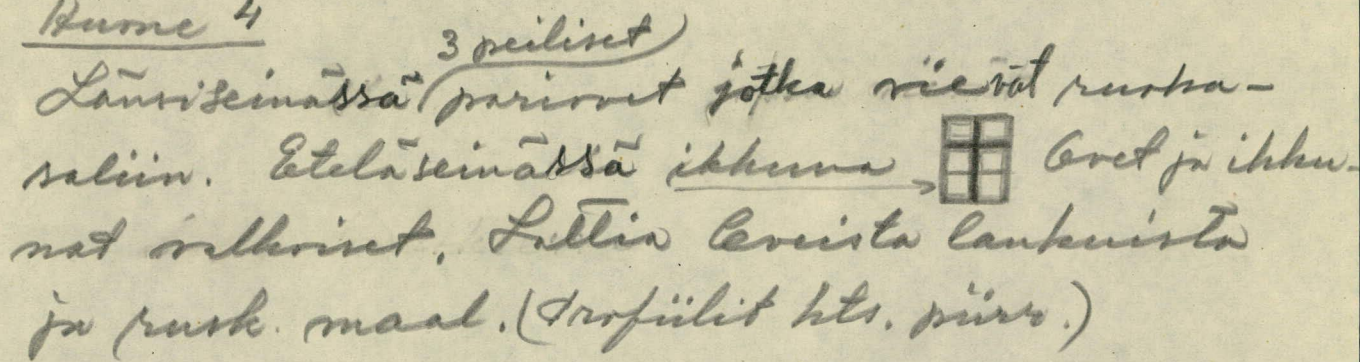 Huone 4
3 peiliset
Länsiseinässä pariovet jotka vievät ruoka-
saliin. Eteläseinässä ikkuna Ovet ja ikku-
nat valkoiset. Lattia leveistä lankuista
ja rusk. maal. (Profiilit kts. piirr.)